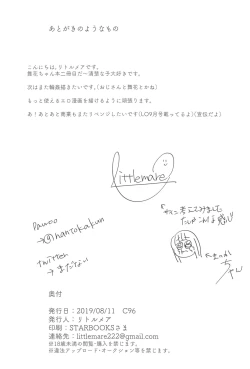 あとがきのようなもの
こんにちは。リトルメアです。
舞花ちゃん本二冊目だ～清楚な子大好きです。
次はまた輪姦描きたいです。(おじさんと舞花とかね)
もっと使えるエロ漫画を描けるように頑張ります。
あ！あとあと商業もまた1ページしたいです(LO9月号載ってるよ)(宣伝だよ)
Littlemare
Pawoo
→@nantokakun
twitter
→まだない
奥付
発行日：2019/08/11　C96
発行人：リトルメア
印刷：STARBOOKSさま
連絡先：littlemare222@gmail.com
※18歳未満の閲覧・購入を禁じます。
※違法アップロード・オークション等を禁じます。